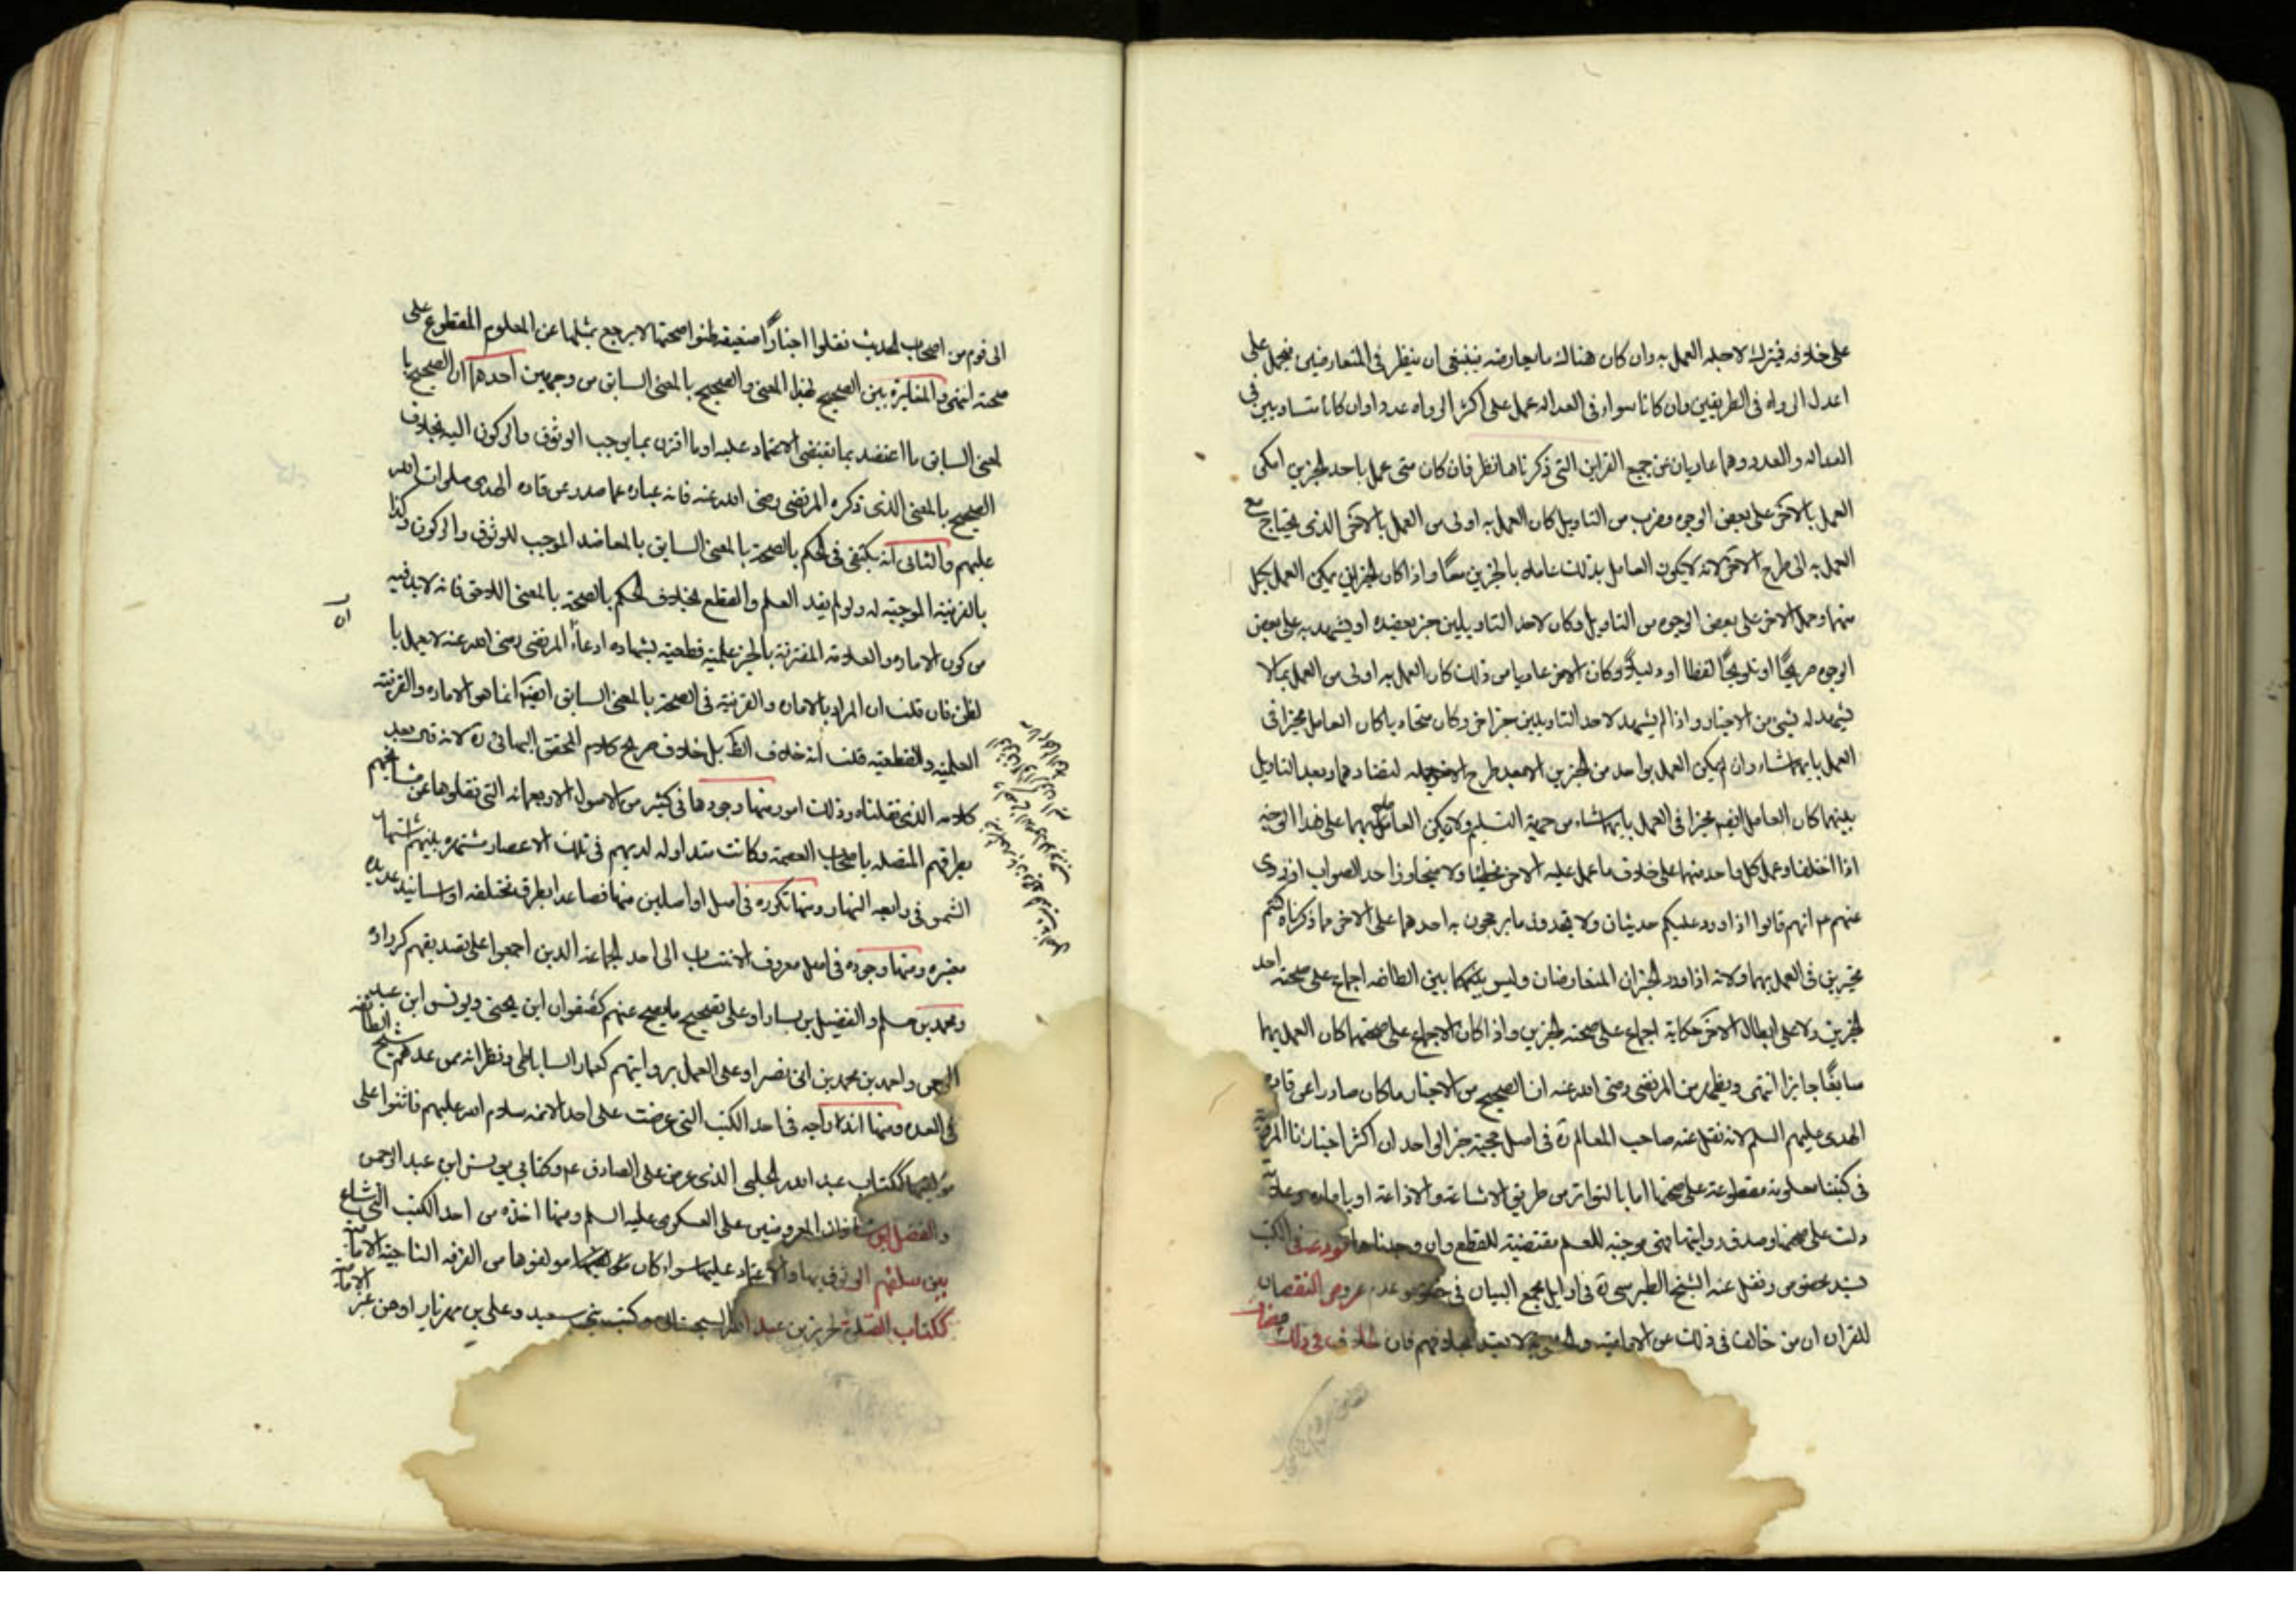 على خلافه فيترك لاجله العمل به وان كان هناك ما يعارضه فينبغي ان ينظر في المتعارضين فيعمل على
اعدل الرواه في الطريقين وان كانا سواء في العداله عمل على اكثر الرواه عددا وان كانا متساويين في
العداله والعدد وهما عاريان عن جميع القراين التي ذكرناها نظر فان كان متى عمل باحد الخبرين امكن
العمل بالآخر على بعض الوجوه وضرب من التاويل كان العمل به اولى من العمل بالآخر الذي يحتاج مع
العمل به الى طرح الآخر لانه يكون العامل بذلك عاملا بالخبرين معًا واذا كان الخبران يمكن العمل بكل
منهما وحمل الآخر على بعض الوجوه من التاويل وكان لاحد التاويلين خبر يعضده او يشهد به على بعض
الوجوه صريحًا او تلويحًا لفظا او دليلا وكان الآخر عاريا من ذلك كان العمل به اولى من العمل بما لا
يشهد له شيء من الاخبار واذا لم يشهد لاحد التاويلين خبر اخر وكان متحاذيا كان العامل مخيرا في
العمل بايهما شاء وان لم يمكن العمل بواحد من الخبرين الا بعد طرح الآخر جمله لتضادهما وبعد التاويل
بينهما كان العامل ايضا مخيرا في العمل بايهما شاء من جهة التسليم ولا يكون العاملان بهما على هذا الوجه
اذا اختلفا وعمل كل واحد منهما على خلاف ما عمل عليه الآخر مخطئا ولا متجاوزا حد الصواب اذ روى
عنهم ع انهم قالوا اذا اورد عليكم حديثان ولا تجدون ما يرجحون به احدهما على الآخر مما ذكرناه كنتم
مخيرين في العمل بهما ولانه اذا ورد الخبران المتعارضان وليس بين الطائفه اجماع على صحه احد
الخبرين ولا على ابطال الآخر فكانه اجماع على صحه الخبرين واذا كان الاجماع على صحتهما كان العمل بهما
سايغًا جايزا انتهى ويظهر من المرتضى رضى الله عنه ان الصحيح من الاخبار ما كان صادرا عن قادة
الهدى عليهم السلم لانه نقل عنه صاحب المعالم ره في اصل حجية خبر الواحد ان اكثر اخبارنا المرويّة
في كتبنا معلومة مقطوعة على صحتها اما بالتواتر من طريق الاشاعة والاذاعة او بامارة وعلامة
دلت على صحتها وصدق رواتها فهي موجبه للعلم مقتضية للقطع وان وجدناها مودعة في الكتب
بسند مخصوص ونقل عنه الشيخ الطبرسي ره في اوايل مجمع البيان في خصوص عدم عروض النقصان
للقران ان من خالف في ذلك من الامامية والحشوية لا يعتد بخلافهم فان الخلاف في ذلك
مضاف
الى قوم من اصحاب الحديث نقلوا اخبارًا ضعيفه ظنوا صحتها لا يرجع بمثلها عن المعلوم المقطوع على
صحته انتهى والمغايرة بين الصحيح بهذا المعنى والصحيح بالمعنى السابق من وجهين احدهما ان الصحيح با
لمعنى السابق ما اعتضد بما يقتضى الاعتماد عليه او ما اقترن بما يوجب الوثوق والركون اليه بخلاف
الصحيح بالمعنى الذى ذكره المرتضى رضى الله عنه فانه عباره عما صدر عن قاده الهدى صلوات الله
عليهم والثانى انه يكتفى في الحكم بالصحة بالمعنى السابق بالمعاضد الموجب للوثوق والركون وكذا
بالقرينة الموجبة له ولو لم يفد العلم والقطع بخلاف الحكم بالصحة بالمعنى اللاحق فانه لابد فيه
من كون الاماره والعلامه المقترنة بالخبر علمية قطعية بشهاده ادعاء المرتضى رضى الله عنه لا يعمل با
لظن فان قلت ان المراد بالاماره والقرينة في الصحة بالمعنى السابق ايضًا انما هو الاماره والقرينة
العلمية والقطعية قلت انه خلاف الظ بل خلاف صريح كلام المحقق البهائى ره لانه قال بعد
كلامه الذى نقلناه وذلك امور منها وجودها في كثير من الاصول الاربعمائه التى نقلوها عن مشايخهم
بطرقهم المتصله باصحاب العصمة وكانت متداوله لديهم في تلك الاعصار مشتهره بينهم اشتهار
الشمس في رابعه النهار ومنها تكرره في اصل او اصلين منها فصاعدا بطرق مختلفه او اسانيد عديده
معتبره ومنها وجوده في اصل معروف الانتساب الى احد الجماعة الذين اجمعوا على تصديقهم كزراره
ومحمد بن مسلم والفضيل بن يسار او على تصحيح ما يصح عنهم كصفوان ابن يحيى ويونس ابن عبد
الرحمن واحمد بن محمد بن ابى نصر او على العمل بروايتهم كعمار الساباطى ونظرائه ممن عدهم شيخ الطائفه
في العده ومنها اندراجه في احد الكتب التى عرضت على احد الائمه سلام الله عليهم فاثنوا على
مؤلفها ككتاب عبد الله الحلبى الذى عرض على الصادق ع وكتابى يونس ابن عبد الرحمن
والفضل ابن شاذان المعروضين على العسكرى عليه السلم ومنها اخذه من احد الكتب التى شاع
بين سلفهم الوثوق بها والاعتماد عليها سواء كان مؤلفوها من الفرقه الناجية الامامية
ككتاب الصلوة لحريز بن عبد الله السجستانى وكتب بنى سعيد وعلى بن مهزيار او من غير الامامية